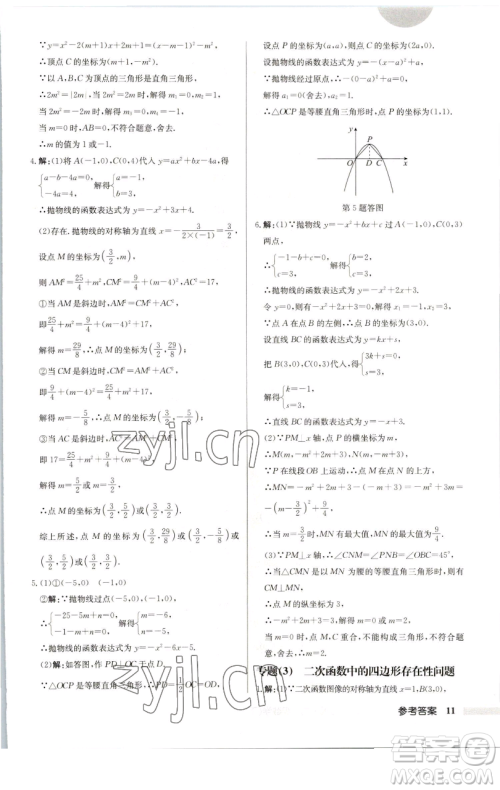 ∵y=x²-2(m+1)x+m²+2m+1=(x-m-1)²,
∴顶点C的坐标为(m+1,0).
∵以A,B,C为顶点的三角形是直角三角形,
∴2m²=|2m|,当m>0时,解得m=1.
当m<0时,解得m=-1.
当m=0时,AB=0,不符合题意,舍去.
∴m的值为1或-1.
4.解:(1)将A(-1,0),C(0,4)代入y=ax²+bx-4a,得
{a-b-4a=0, -4a=4. 解得{a=-1, b=3.
∴抛物线的函数表达式为y=-x²+3x+4.
(2)存在.抛物线的对称轴为直线x=-3/(2×(-1))=3/2.
设点M的坐标为(3/2,m),
则AM²=25/4+m²,CM²=9/4+(m-4)²,AC²=17.
①当AM是斜边时,AM²=CM²+AC²,
即25/4+m²=9/4+(m-4)²+17,
解得m=29/8,∴点M的坐标为(3/2,29/8).
②当CM是斜边时,CM²=AM²+AC²,
即9/4+(m-4)²=25/4+m²+17,
解得m=-5/8,∴点M的坐标为(3/2,-5/8).
③当AC是斜边时,AC²=AM²+CM²,
即17=25/4+m²+9/4+(m-4)²,
解得m=3/2或m=5/2,
∴点M的坐标为(3/2,3/2)或(3/2,5/2).
综上所述,点M的坐标为(3/2,29/8)或(3/2,-5/8)或
(3/2,3/2)或(3/2,5/2).
5.(1)①(-5,0) (-1,0)
②解:∵抛物线过点(-5,0),(-1,0),
∴{-25-5m+n=0, -1-m+n=0, 解得{m=-6, n=-5.
(2)解:如答图,作PD⊥OC于点D,
∵△OCP是等腰直角三角形,∴PD=1/2OC=OD.
设点P的坐标为(a,a),则点C的坐标为(2a,0).
设抛物线的函数表达式为y=-(x-a)²+a.
∵抛物线经过原点,∴-(0-a)²+a=0,
解得a₁=0(舍去),a₂=1.
∴△OCP是等腰直角三角形时,点P的坐标为(1,1).
y
P
O
D
C
x
第5题答图
6.解:(1)∵抛物线y=-x²+bx+c过A(-1,0),C(0,3)
两点,
∴{-1-b+c=0, c=3, 解得{b=2, c=3.
∴抛物线的函数表达式为y=-x²+2x+3.
令y=0,则-x²+2x+3=0,解得x₁=-1,x₂=3.
∵点A在点B的左侧,∴点B的坐标为(3,0).
设直线BC的函数表达式为y=kx+s,
把B(3,0),C(0,3)代入,得{3k+s=0, s=3.
解得{k=-1, s=3.
∴直线BC的函数表达式为y=-x+3.
(2)∵PM⊥x轴,点P的横坐标为m,
∴M(m,-m²+2m+3),N(m,-m+3).
∵点M在直线BC上方的抛物线上,
∴MN=-m²+2m+3-(-m+3)=-m²+3m=
-(m-3/2)²+9/4,
∴当m=3/2时,MN有最大值,最大值为9/4.
(3)∵PM⊥x轴,∴∠CNM=∠BCO=45°.
∴当△CMN是以MN为腰的等腰直角三角形时,有
CM⊥MN.
∴点M的纵坐标为3,
∴-m²+2m+3=3,
解得m=0(不合题意,舍去)或m=2,
∴当△CMN是以MN为腰的等腰直角三角形时,m
=2.
专题(3) 二次函数中的四边形存在性问题
1.解:(1)∵二次函数图像的对称轴为直线x=1,B(3,0),
参考答案 11
zyjl.cn
zyjl.cn